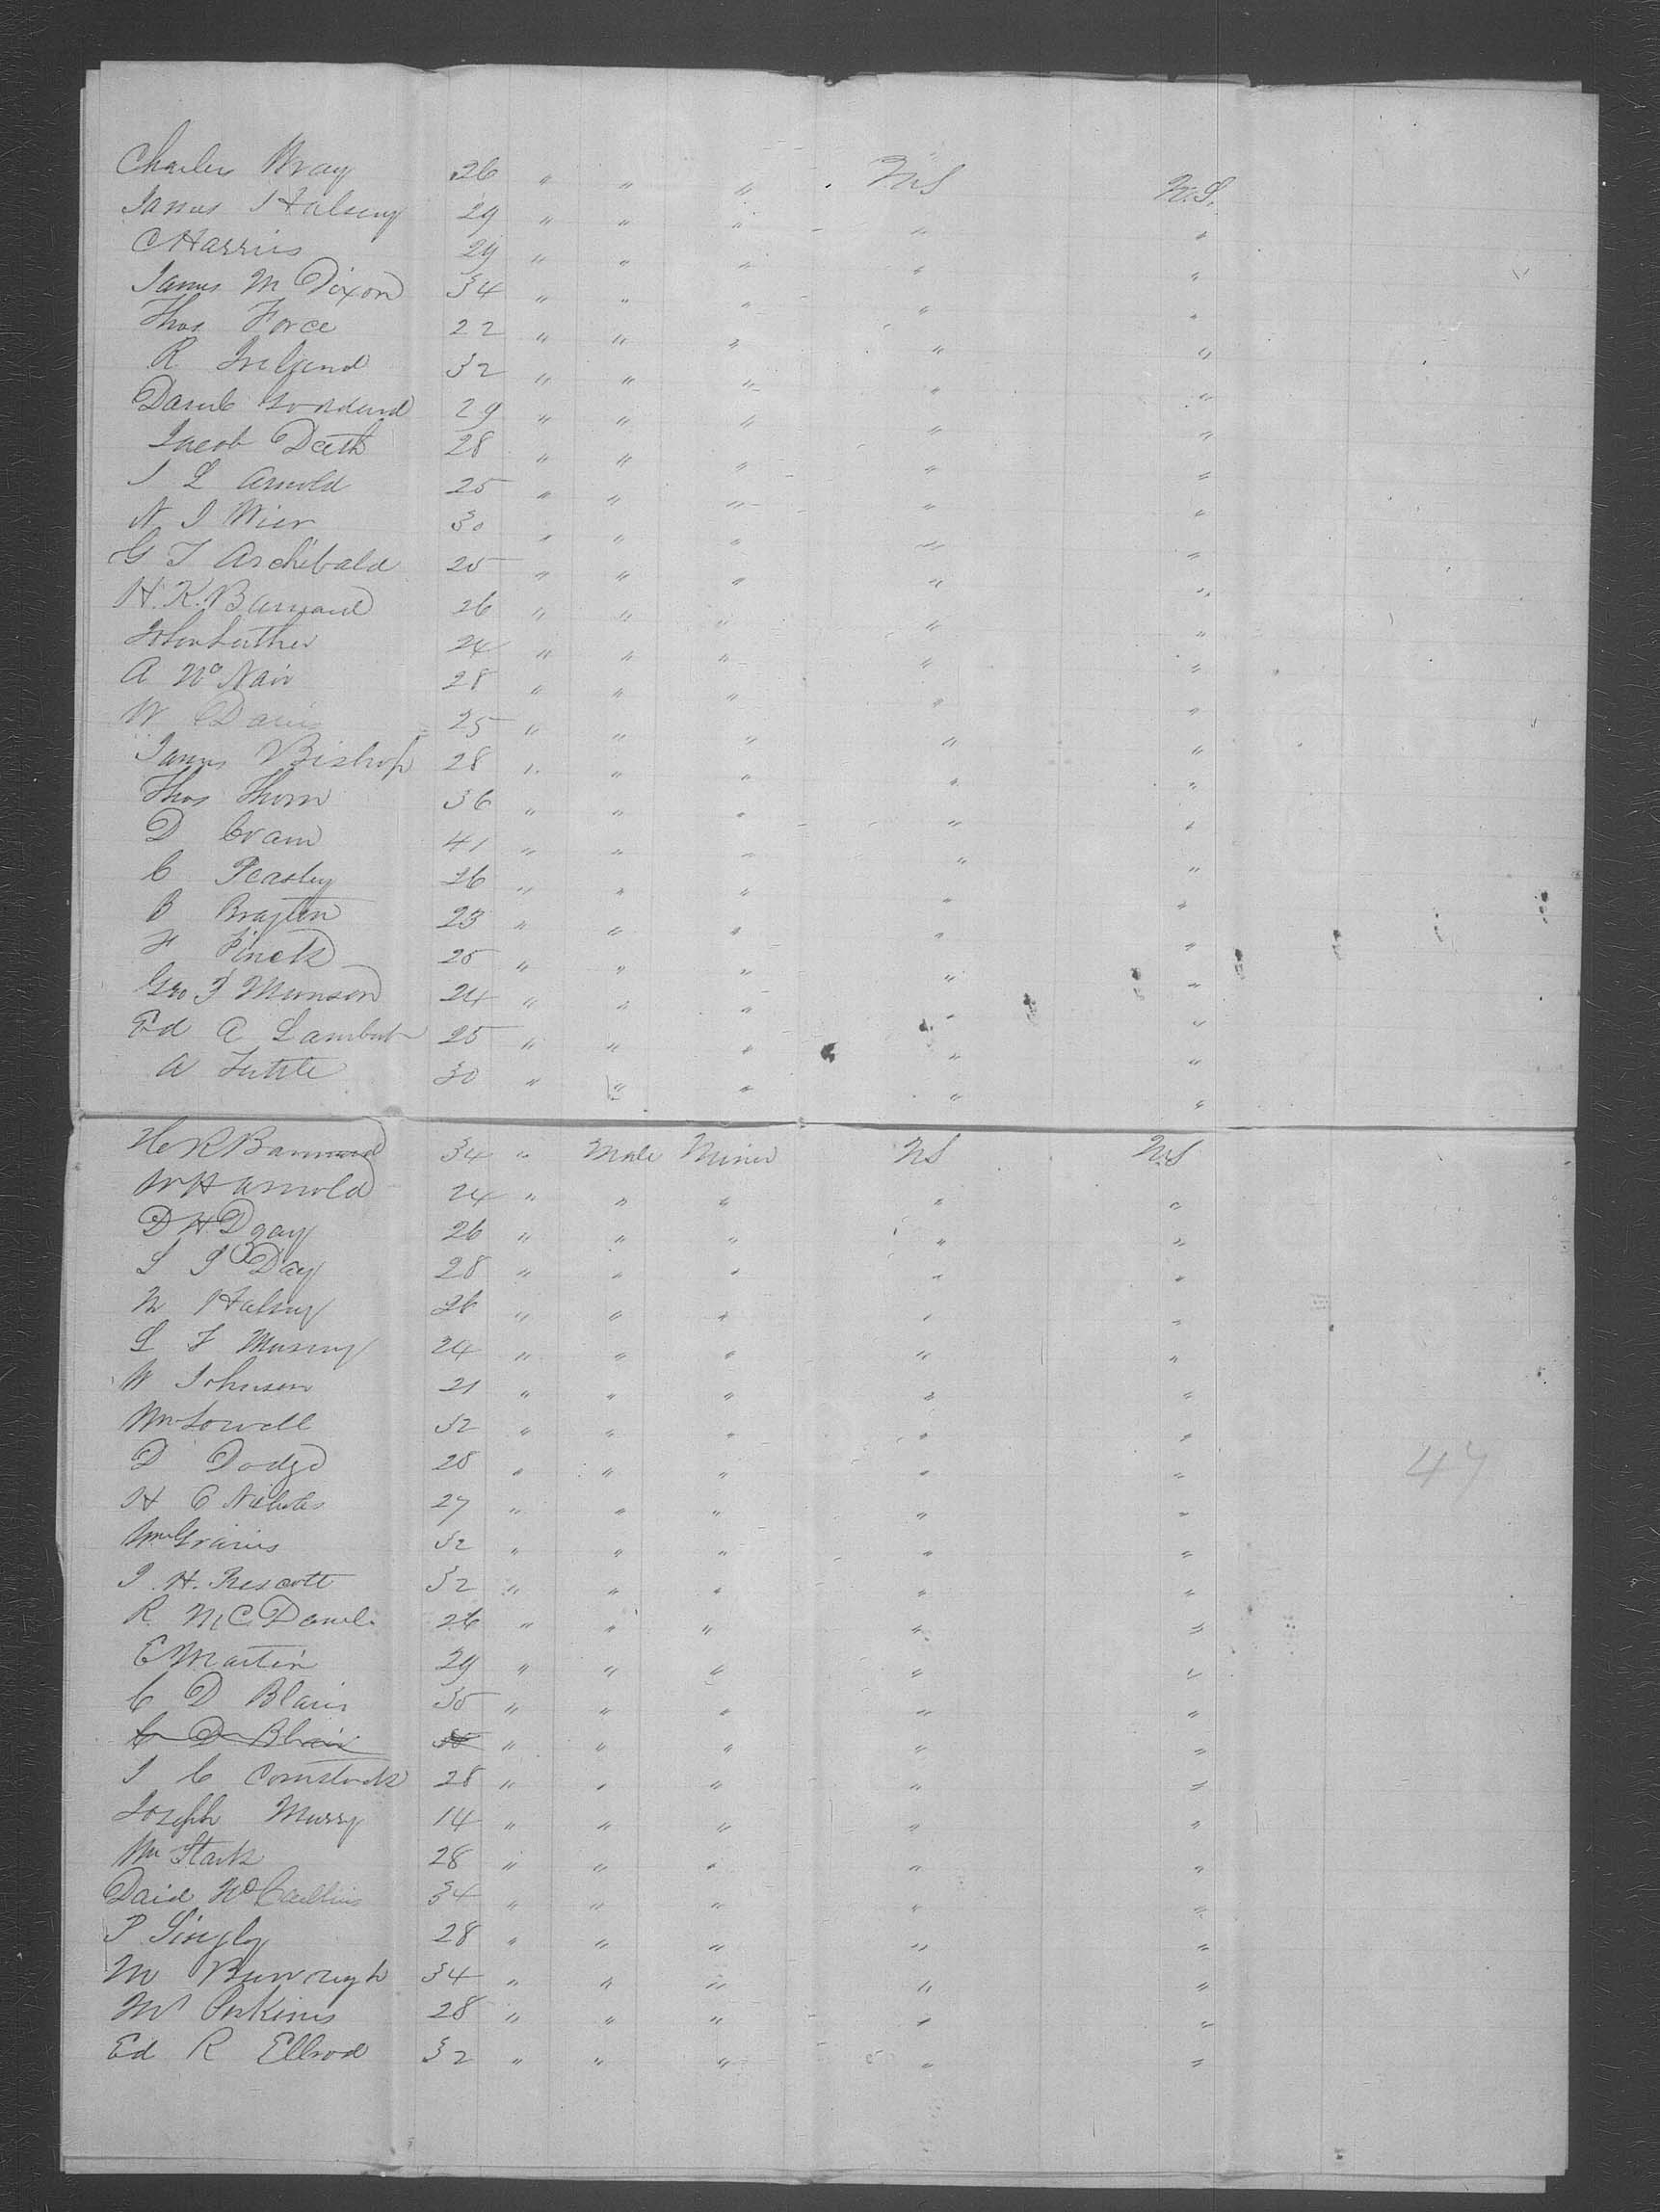 Charles Wray 26 " " " U.S U.S.
James Halsey 29 " " " " "
C Harris 29 " " " " "
James M Dixon 34 " " " " "
Thos Force 22 " " " " "
R Ireland 32 " " " " "
29 " " " " "
Jacob Deeth 28 " " " " "
J L Arnold 25 " " " " "
N J Wier 30 " " " " "
G T Archibald 25 " " " " "
H. K. Barnard 26 " " " " "
John Luther 24 " " " " "
A McNair 28 " " " " "
W Davis 25 " " " " "
James Bishop 28 " " " " "
Thos Thorn 36 " " " " "
D Cram 41 " " " " "
C Peasley 26 " " " " "
B Brayten 23 " " " " "
F Pinck 25 " " " " "
Geo F Munson 24 " " " " "
Ed A Lambert 25 " " " " "
A Tuttle 30 " " " " "
H R Barnard 34 " Male Miner U.S U.S
W H Arnold 24 " " " " "
D H Day 26 " " " " "
S J Day 28 " " " " "
N Halsey 26 " " " " "
L F 24 " " " " "
W Johnson 21 " " " " "
Wm Lowell 32 " " " " "
D Dodge 28 " " " " "
47
H C Nichols 27 " " " " "
Wm 32 " " " " "
J. H. Prescott 32 " " " " "
R McDaniel 26 " " " " "
E Martin 29 " " " " "
C D Blair 35 " " " " "
C D Blair 35 " " " " "
J C Comstock 28 " " " " "
Joseph Murry 14 " " " " "
Wm Stark 28 " " " " "
David McCallins 34 " " " " "
P Singley 28 " " " " "
M 34 " " " " "
M Perkins 28 " " " " "
Ed R Ellrod 32 " " " " "